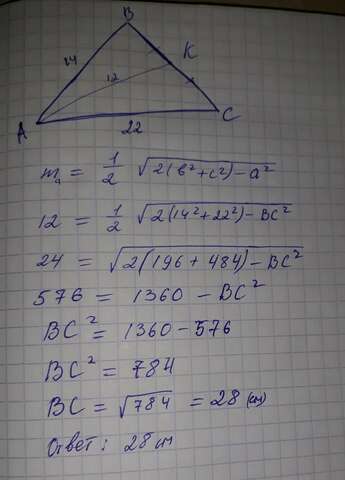 B
14
K
12
A
C
22
mₐ = 1/2 √2(b²+c²)-a²
12 = 1/2 √2(14²+22²)-BC²
24 = √2(196+484)-BC²
576 = 1360 - BC²
BC² = 1360-576
BC² = 784
BC = √784 = 28 (см)
Ответ: 28 см